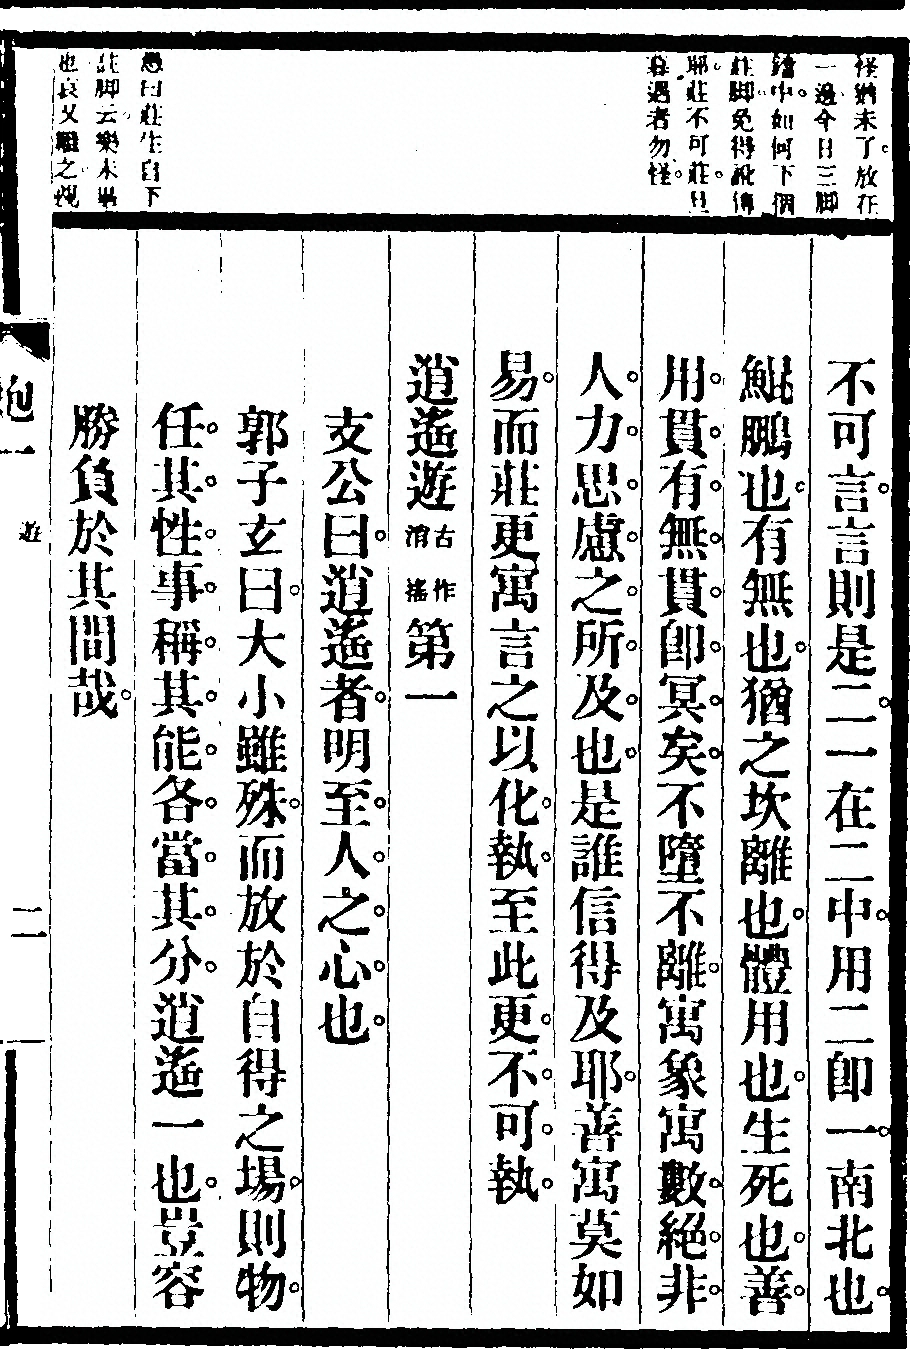 怪猶未了放在
一邊今日三脚
鐺中如何下個
註脚免得訛傳
耶莊不可莊旦
暮遇者勿怪
不可言言則是二一在二中用二卽一南北也
鯤鵬也有無也猶之坎離也體用也生死也善
用貫有無貫卽冥矣不墮不離寓象寓數絕非
人力思慮之所及也是誰信得及耶善寓莫如
易而莊更寓言之以化執至此更不可執
逍遙遊古作消搖第一
支公曰逍遙者明至人之心也
郭子玄曰大小雖殊而放於自得之場則物
任其性事稱其能各當其分逍遙一也豈容
勝負於其間哉
愚曰莊生自下
註脚云樂未畢
也哀又繼之
炮一
遊
二